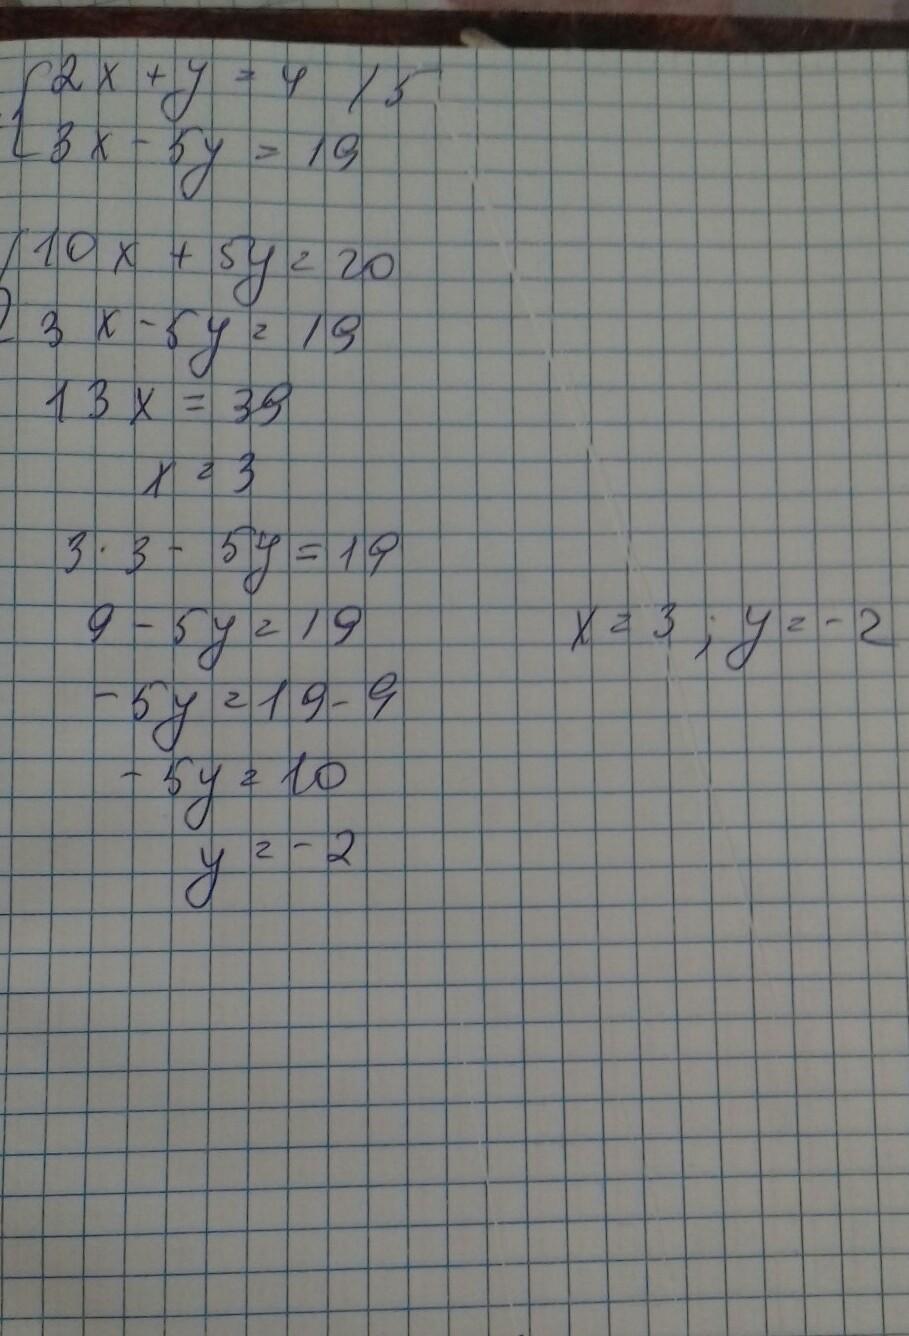 2x + y = 4 / 5
3x - 5y = 19
10x + 5y = 20
3x - 5y = 19
13x = 39
x = 3
3 · 3 - 5y = 19
9 - 5y = 19
x = 3 ; y = -2
-5y = 19 - 9
-5y = 10
y = -2